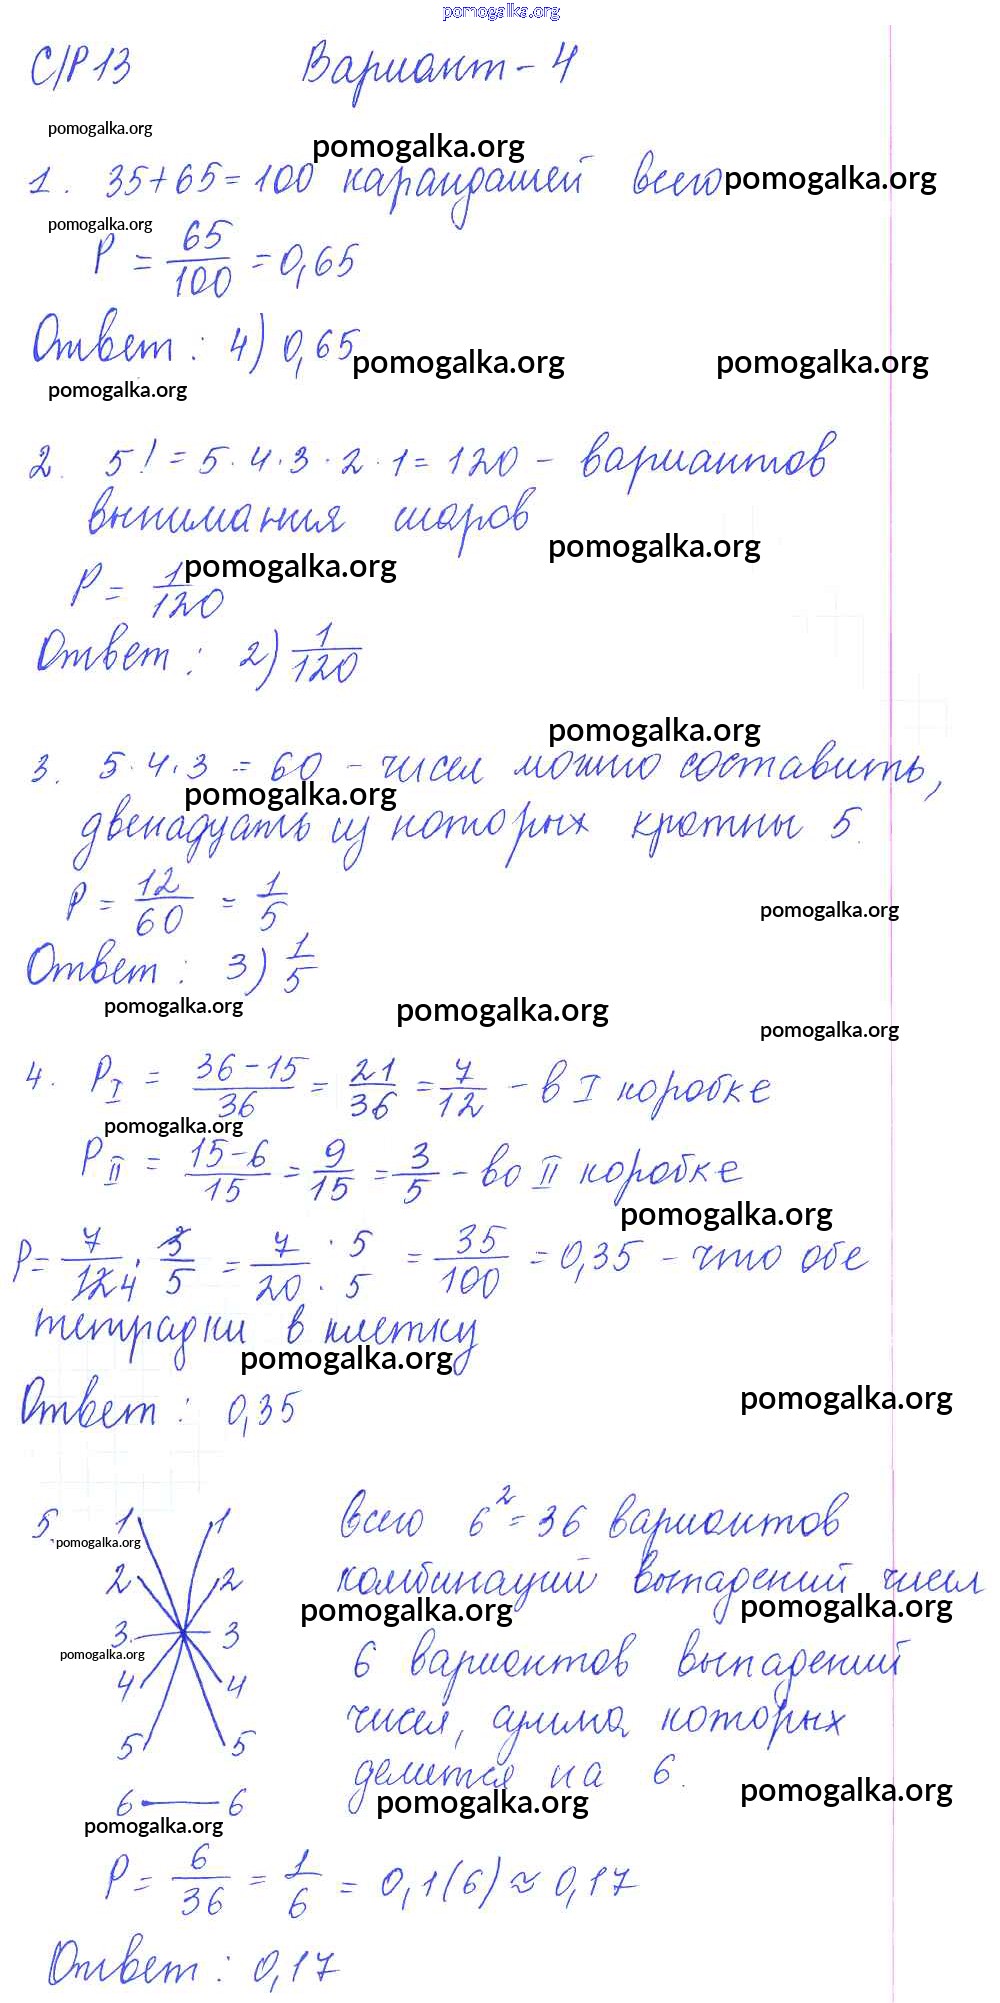 pomogalka.org
С/Р 13 Вариант - 4
pomogalka.org
pomogalka.org
1. 35+65=100 карандашей всего pomogalka.org
pomogalka.org
P = 65/100 = 0,65
Ответ: 4) 0,65
pomogalka.org pomogalka.org
pomogalka.org
2. 5! = 5·4·3·2·1 = 120 - вариантов
вынимания шаров
pomogalka.org
pomogalka.org
P = 1/120
Ответ: 2) 1/120
pomogalka.org
3. 5·4·3 = 60 - чисел можно составить,
pomogalka.org
двенадцать из которых кратны 5.
P = 12/60 = 1/5
pomogalka.org
Ответ: 3) 1/5
pomogalka.org pomogalka.org
pomogalka.org
4. P_I = (36-15)/36 = 21/36 = 7/12 - в I коробке
pomogalka.org
P_II = (15-6)/15 = 9/15 = 3/5 - во II коробке
pomogalka.org
P = 7/12 4 · 3/5 = 7/20 · 5/5 = 35/100 = 0,35 - что обе
тетрадки в клетку
pomogalka.org
Ответ: 0,35
pomogalka.org
5. 1 1 Всего 6² = 36 вариантов
pomogalka.org
2 2 комбинаций выпадений чисел
pomogalka.org pomogalka.org
3 3 6 вариантов выпадений
pomogalka.org
4 4 чисел, сумма которых
5 5 делится на 6.
6 6
pomogalka.org pomogalka.org
pomogalka.org
P = 6/36 = 1/6 = 0,1(6) ≈ 0,17
Ответ: 0,17